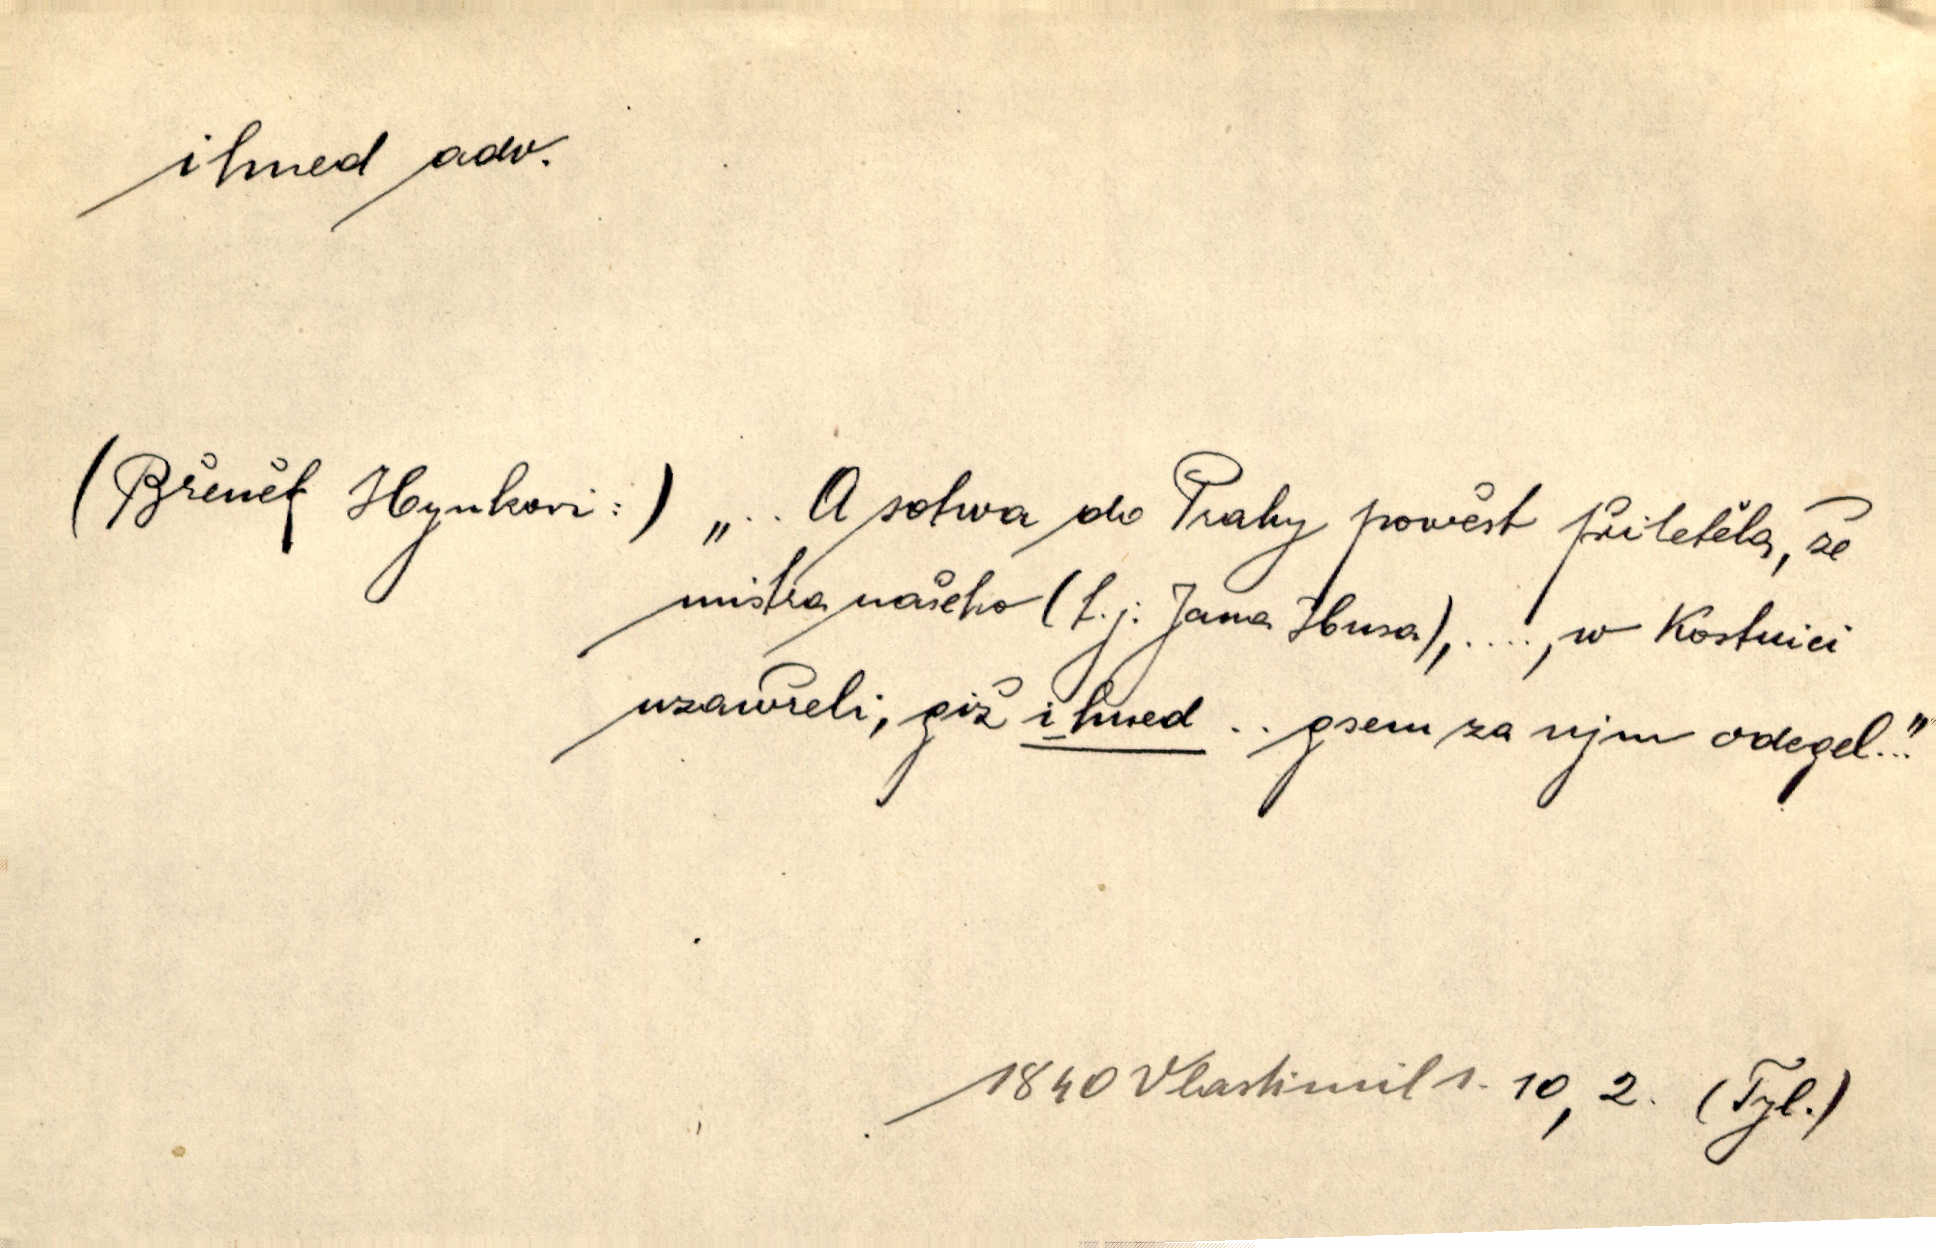 ihned adv.
(Břeněk Hynkovi:) „.. A sotwa do Prahy powěst přiletěla, že
mistra našeho (t.j. Jana Husa), ...., w Kostnici
uzawřeli, giž ihned .. gsem za njm odegel..."
1840 Vlastimil 1. 10, 2. (Tyl.)